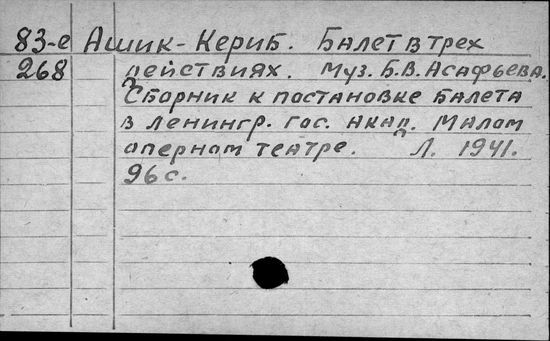 83-е Ашик-Кериб. Балет в трех
268 действиях. Муз. Б.В. Асафьева.
Сборник к постановке балета
в Ленингр. гос. акад. Малом
оперном театре. Л. 1941.
96 с.